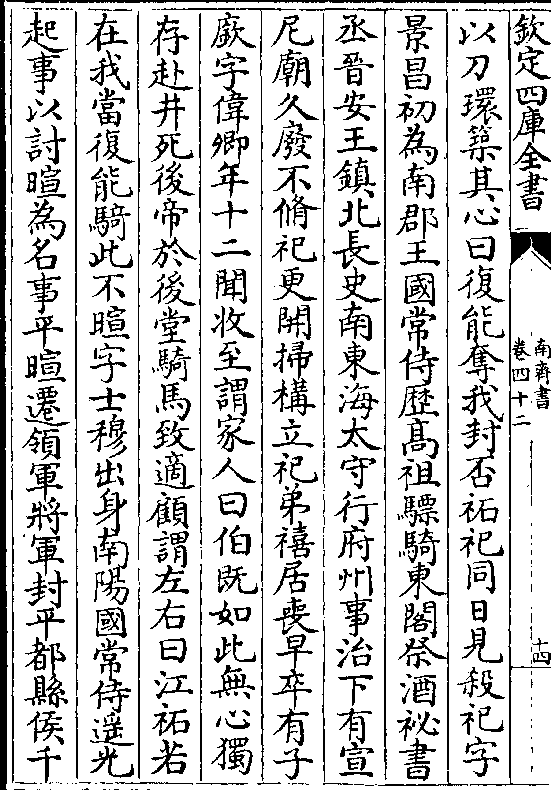 欽定四庫全書
南齊書
卷四十二
十四
以刀環築其心曰復能奪我封否祏祀同日見殺祀字
景昌初為南郡王國常侍歴髙祖驃騎東閣祭酒祕書
丞晉安王鎮北長史南東海太守行府州事治下有宣
尼廟久廢不脩祀更開掃構立祀弟禧居喪早卒有子
廞字偉卿年十二聞收至謂家人曰伯既如此無心獨
存赴井死後帝於後堂騎馬致適顧謂左右曰江祏若
在我當復能騎此不暄字士穆出身南陽國常侍遥光
起事以討暄為名事平暄遷領軍將軍封平都縣侯千